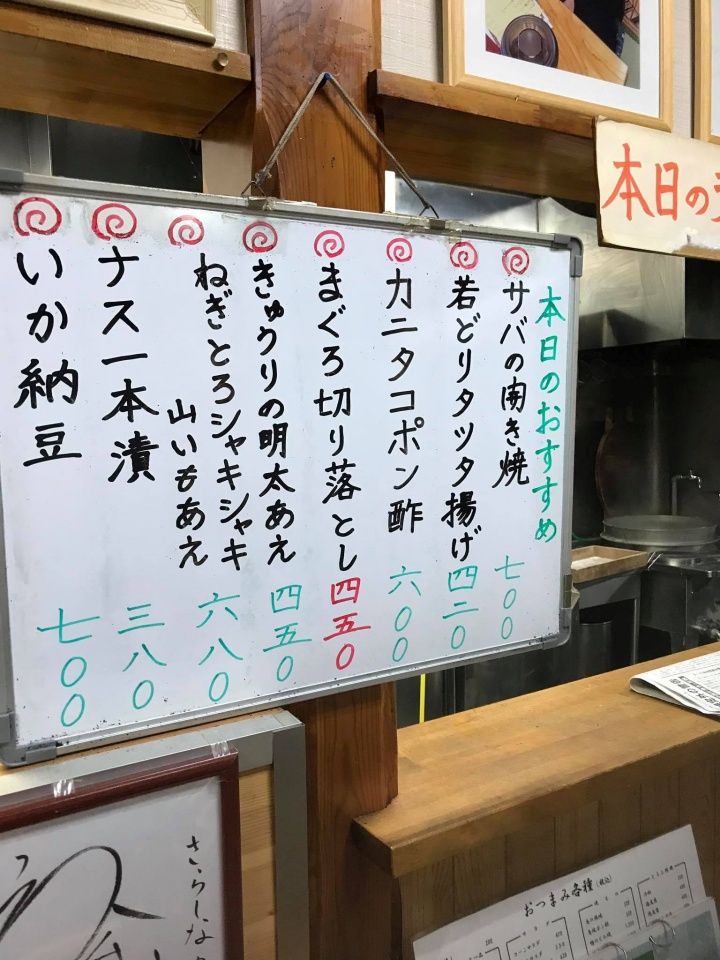 本日のおすすめ
サバの開き焼 七〇〇
若どりタツタ揚げ 四二〇
カニタコポン酢 六〇〇
まぐろ切り落とし 四五〇
きゅうりの明太あえ 四五〇
ねぎとろシャキシャキ
山いもあえ 六八〇
ナス一本漬 三八〇
いか納豆 七〇〇
本日の
さらしな
おつまみ各種(税込)